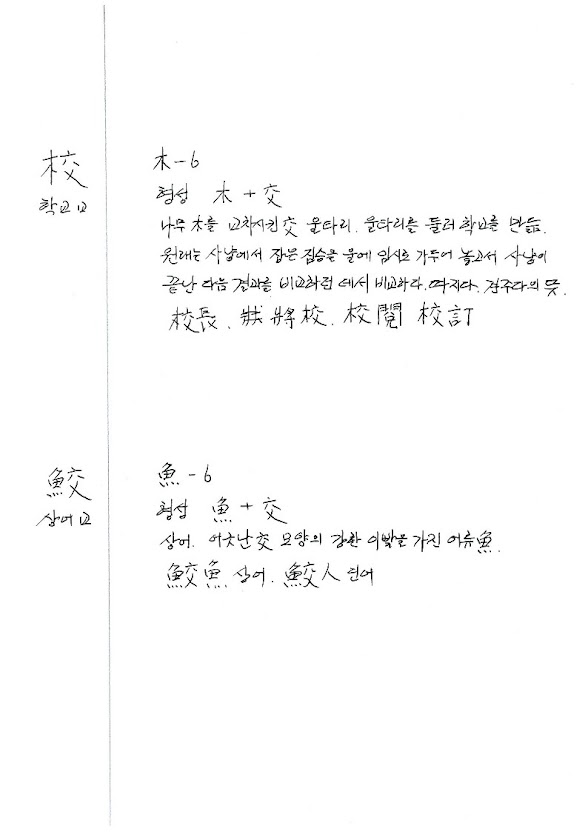 校
학교 교
木-6
형성 木 + 交
나무 木를 교차시킨 交 울타리. 울타리를 둘러 학교를 만듦.
원래는 사냥에서 잡은 짐승을 울에 임시로 가두어 놓고서 사냥이
끝난 다음 결과를 비교하던 데서 비교하다. 따지다. 견주다의 뜻.
校長. 將校. 校閱 校訂
鮫
상어 교
魚-6
형성 魚 + 交
상어. 어긋난 交 모양의 강한 이빨을 가진 어류 魚.
鮫魚 상어. 鮫人 인어